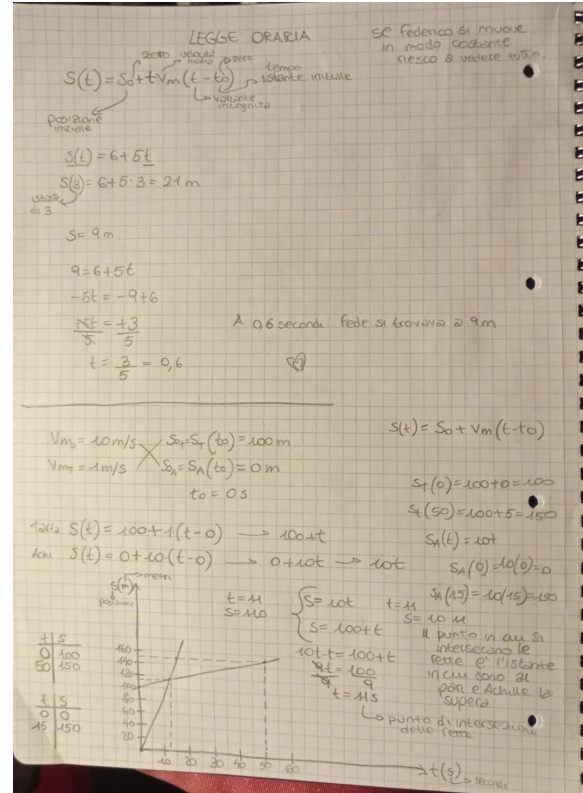 LEGGE ORARIA
se federico si muove
in modo costante
riesco a vedere tutto.
zero velocità media zero tempo
S(t) = S0 + t Vm (t - t0) istante iniziale
variante
incognita
posizione
iniziale
S(t) = 6 + 5t
S(3) = 6 + 5 · 3 = 21 m
istante
di 3
S = 9 m
9 = 6 + 5t
-5t = -9 + 6
5t/5 = +3/5
A 0,6 secondi fede si trovava a 9 m
t = 3/5 = 0,6
VmA = 10 m/s S0T = ST (t0) = 100 m
VmT = 1 m/s S0A = SA (t0) = 0 m
t0 = 0 s
S(t) = S0 + Vm (t - t0)
ST (0) = 100 + 0 = 100
St (50) = 100 + 5 = 150
SA (t) = 10t
SA (0) = 10(0) = 0
SA (15) = 10(15) = 150
S(t) = 100 + 1 · (t - 0) → 100 + t
Achi S(t) = 0 + 10 · (t - 0) → 0 + 10t → 10t
S(m) → metri
posizione
t = 11
S = 110
S = 10t
S = 100 + t
t = 11
S = 10 · 11
10t - t = 100 + t
9t/9 = 100/9
t = 11 s
punto di intersezione
delle rette
Il punto in cui si
intersecano le
rette è l'istante
in cui sono al
pari e Achille la
supera
t s
0 100
50 150
t s
0 0
15 150
160
140
120
100
80
60
40
20
10 20 30 40 50 60
t(s) → secondi